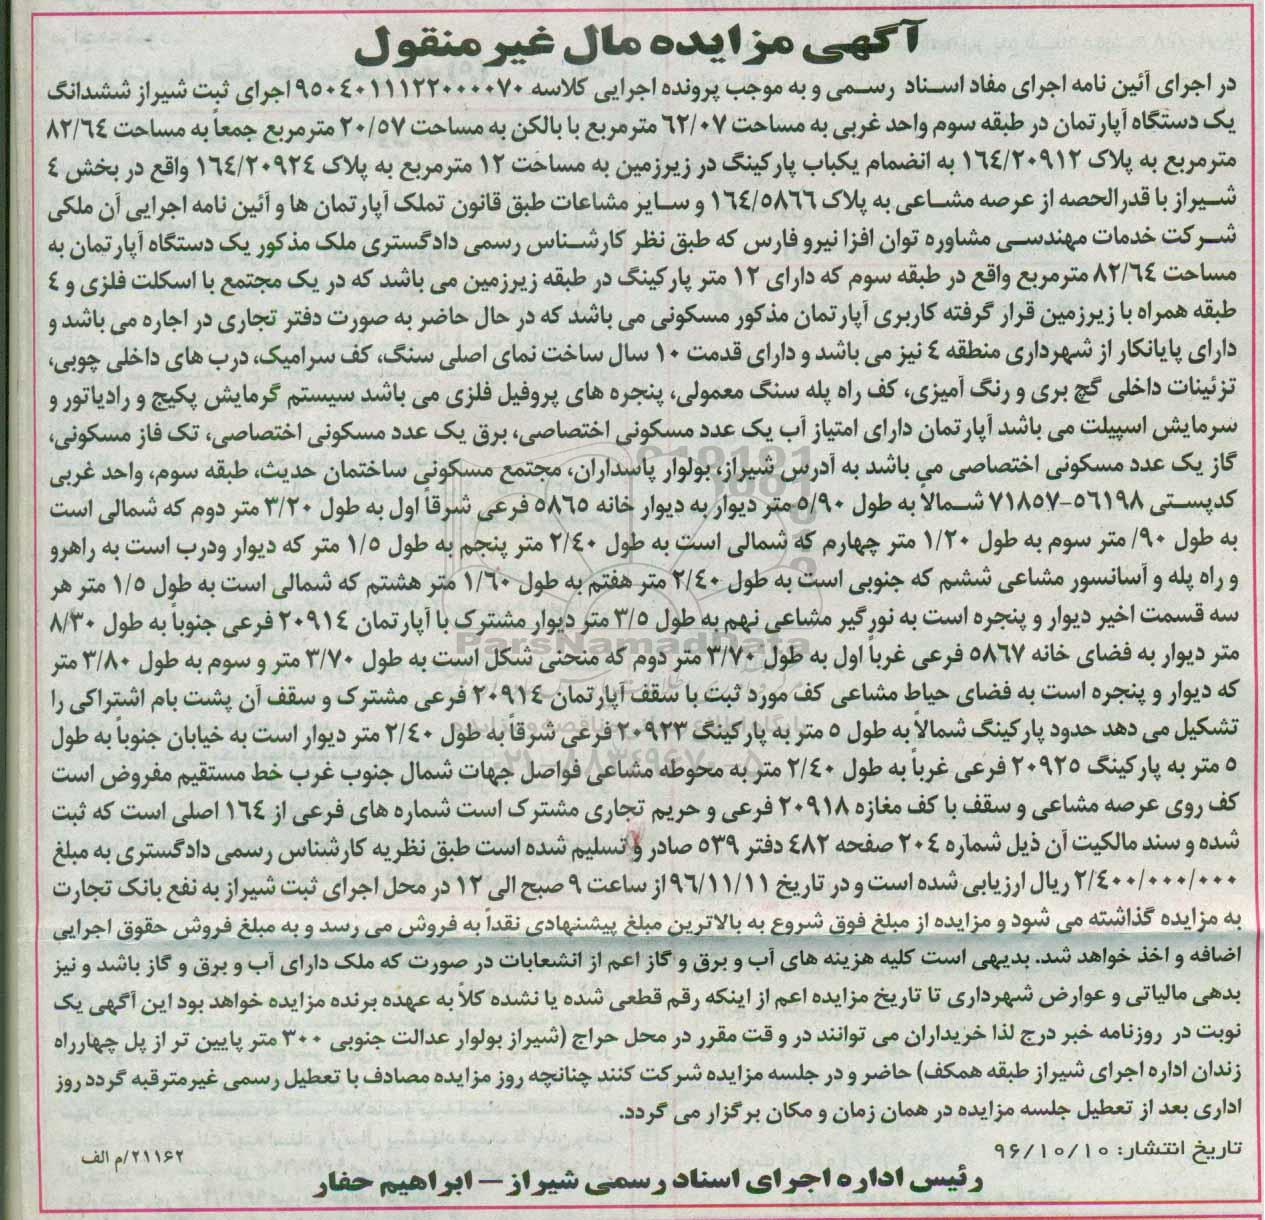 آگهی مزایده مال غیر منقول
در اجرای آئین نامه اجرای مفاد اسناد رسمی و به موجب پرونده اجرایی کلاسه ۹۵۰۴۰۱۱۱۲۲۰۰۰۰۷۰ اجرای ثبت شیراز ششدانگ
یک دستگاه آپارتمان در طبقه سوم واحد غربی به مساحت ۶۲/۰۷ مترمربع با بالکن به مساحت ۲۰/۵۷ مترمربع جمعاً به مساحت ۸۲/۶۴
مترمربع به پلاک ۱۶۴/۲۰۹۱۲ به انضمام یکباب پارکینگ در زیرزمین به مساحت ۱۲ مترمربع به پلاک ۱۶۴/۲۰۹۲۴ واقع در بخش ۴
شیراز با قدرالحصه از عرصه مشاعی به پلاک ۱۶۴/۵۸۶۶ و سایر مشاعات طبق قانون تملک آپارتمان ها و آئین نامه اجرایی آن ملکی
شرکت خدمات مهندسی مشاوره توان افزا نیرو فارس که طبق نظر کارشناس رسمی دادگستری ملک مذکور یک دستگاه آپارتمان به
مساحت ۸۲/۶۴ مترمربع واقع در طبقه سوم که دارای ۱۲ متر پارکینگ در طبقه زیرزمین می باشد که در یک مجتمع با اسکلت فلزی و ۴
طبقه همراه با زیرزمین قرار گرفته کاربری آپارتمان مذکور مسکونی می باشد که در حال حاضر به صورت دفتر تجاری در اجاره می باشد و
دارای پایانکار از شهرداری منطقه ۴ نیز می باشد و دارای قدمت ۱۰ سال ساخت نمای اصلی سنگ، کف سرامیک، درب های داخلی چوبی،
تزئینات داخلی گچ بری و رنگ آمیزی، کف راه پله سنگ معمولی، پنجره های پروفیل فلزی می باشد سیستم گرمایش پکیج و رادیاتور و
سرمایش اسپیلت می باشد آپارتمان دارای امتیاز آب یک عدد مسکونی اختصاصی، برق یک عدد مسکونی اختصاصی، تک فاز مسکونی،
گاز یک عدد مسکونی اختصاصی می باشد به آدرس شیراز، بولوار پاسداران، مجتمع مسکونی ساختمان حدیث، طبقه سوم، واحد غربی
کدپستی ۵۶۱۹۸-۷۱۸۵۷ شمالاً به طول ۵/۹۰ متر دیوار به دیوار خانه ۵۸۶۵ فرعی شرقاً اول به طول ۳/۲۰ متر دوم که شمالی است
به طول ۹۰/ متر سوم به طول ۱/۲۰ متر چهارم که شمالی است به طول ۲/۴۰ متر پنجم به طول ۱/۵ متر که دیوار ودرب است به راهرو
و راه پله و آسانسور مشاعی ششم که جنوبی است به طول ۲/۴۰ متر هفتم به طول ۱/۶۰ متر هشتم که شمالی است به طول ۱/۵ متر هر
سه قسمت اخیر دیوار و پنجره است به نورگیر مشاعی نهم به طول ۳/۵ متر دیوار مشترک با آپارتمان ۲۰۹۱۴ فرعی جنوباً به طول ۸/۳۰
متر دیوار به فضای خانه ۵۸۶۷ فرعی غرباً اول به طول ۳/۷۰ متر دوم که منحنی شکل است به طول ۳/۷۰ متر و سوم به طول ۳/۸۰ متر
که دیوار و پنجره است به فضای حیاط مشاعی کف مورد ثبت با سقف آپارتمان ۲۰۹۱۴ فرعی مشترک و سقف آن پشت بام اشتراکی را
تشکیل می دهد حدود پارکینگ شمالاً به طول ۵ متر به پارکینگ ۲۰۹۲۳ فرعی شرقاً به طول ۲/۴۰ متر دیوار است به خیابان جنوباً به طول
۵ متر به پارکینگ ۲۰۹۲۵ فرعی غرباً به طول ۲/۴۰ متر به محوطه مشاعی فواصل جهات شمال جنوب غرب خط مستقیم مفروض است
کف روی عرصه مشاعی و سقف با کف مغازه ۲۰۹۱۸ فرعی و حریم تجاری مشترک است شماره های فرعی از ۱۶۴ اصلی است که ثبت
شده و سند مالکیت آن ذیل شماره ۲۰۴ صفحه ۴۸۲ دفتر ۵۳۹ صادر و تسلیم شده است طبق نظریه کارشناس رسمی دادگستری به مبلغ
۲/۴۰۰/۰۰۰/۰۰۰ ریال ارزیابی شده است و در تاریخ ۹۶/۱۱/۱۱ از ساعت ۹ صبح الی ۱۲ در محل اجرای ثبت شیراز به نفع بانک تجارت
به مزایده گذاشته می شود و مزایده از مبلغ فوق شروع به بالاترین مبلغ پیشنهادی نقداً به فروش می رسد و به مبلغ فروش حقوق اجرایی
اضافه و اخذ خواهد شد. بدیهی است کلیه هزینه های آب و برق و گاز اعم از انشعابات در صورت که ملک دارای آب و برق و گاز باشد و نیز
بدهی مالیاتی و عوارض شهرداری تا تاریخ مزایده اعم از اینکه رقم قطعی شده یا نشده کلاً به عهده برنده مزایده خواهد بود این آگهی یک
نوبت در روزنامه خبر درج لذا خریداران می توانند در و قت مقرر در محل حراج (شیراز بولوار عدالت جنوبی ۳۰۰ متر پایین تر از پل چهارراه
زندان اداره اجرای شیراز طبقه همکف) حاضر و در جلسه مزایده شرکت کنند چنانچه روز مزایده مصادف با تعطیل رسمی غیرمترقبه گردد روز
اداری بعد از تعطیل جلسه مزایده در همان زمان و مکان برگزار می گردد.
تاریخ انتشار: ۹۶/۱۰/۱۰
۲۱۱۶۲/م الف
رئیس اداره اجرای اسناد رسمی شیراز – ابراهیم حفار
ParsNamadData